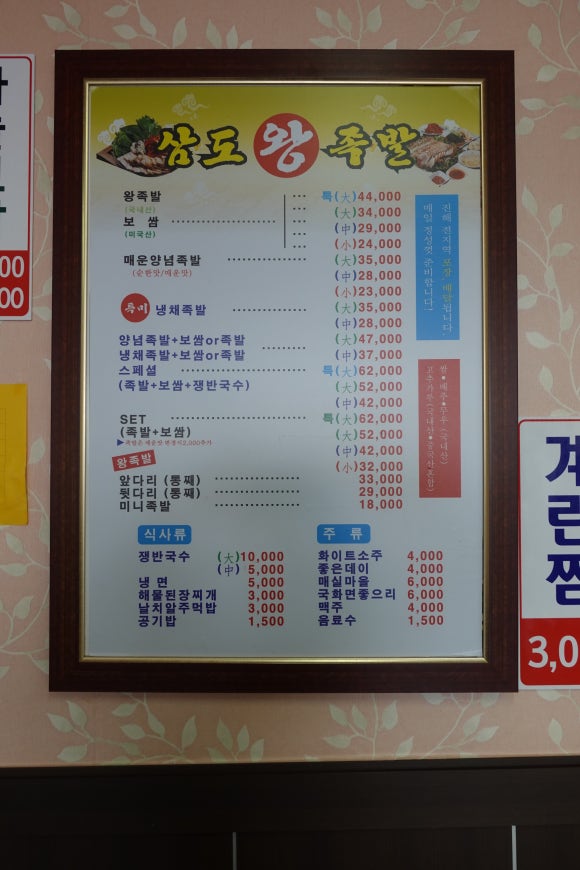 삼도 왕 족발
왕족발 특(大)44,000
(국내산) (大)34,000
보 쌈 (中)29,000
(미국산) (小)24,000
매운양념족발 (大)35,000
(순한맛/매운맛) (中)28,000
(小)23,000
특미 냉채족발 (大)35,000
(中)28,000
양념족발+보쌈or족발 (大)47,000
냉채족발+보쌈or족발 (中)37,000
스페셜 특(大)62,000
(족발+보쌈+쟁반국수) (大)52,000
(中)42,000
SET 특(大)62,000
(족발+보쌈) (大)52,000
(中)42,000
왕족발 (小)32,000
앞다리 (통째) 33,000
뒷다리 (통째) 29,000
미니족발 18,000
진해 전지역 포장 배달됩니다.
매일 정성껏 준비합니다!
쌀•배추•무우 (국내산)
고추가루 (국내산•중국산혼합)
식사류
쟁반국수 (大)10,000
(中) 5,000
냉 면 5,000
해물된장찌개 3,000
날치알주먹밥 3,000
공기밥 1,500
주 류
화이트소주 4,000
좋은데이 4,000
매실마을 6,000
국화면좋으리 6,000
맥주 4,000
음료수 1,500
계
란
찜
3,0
00
00